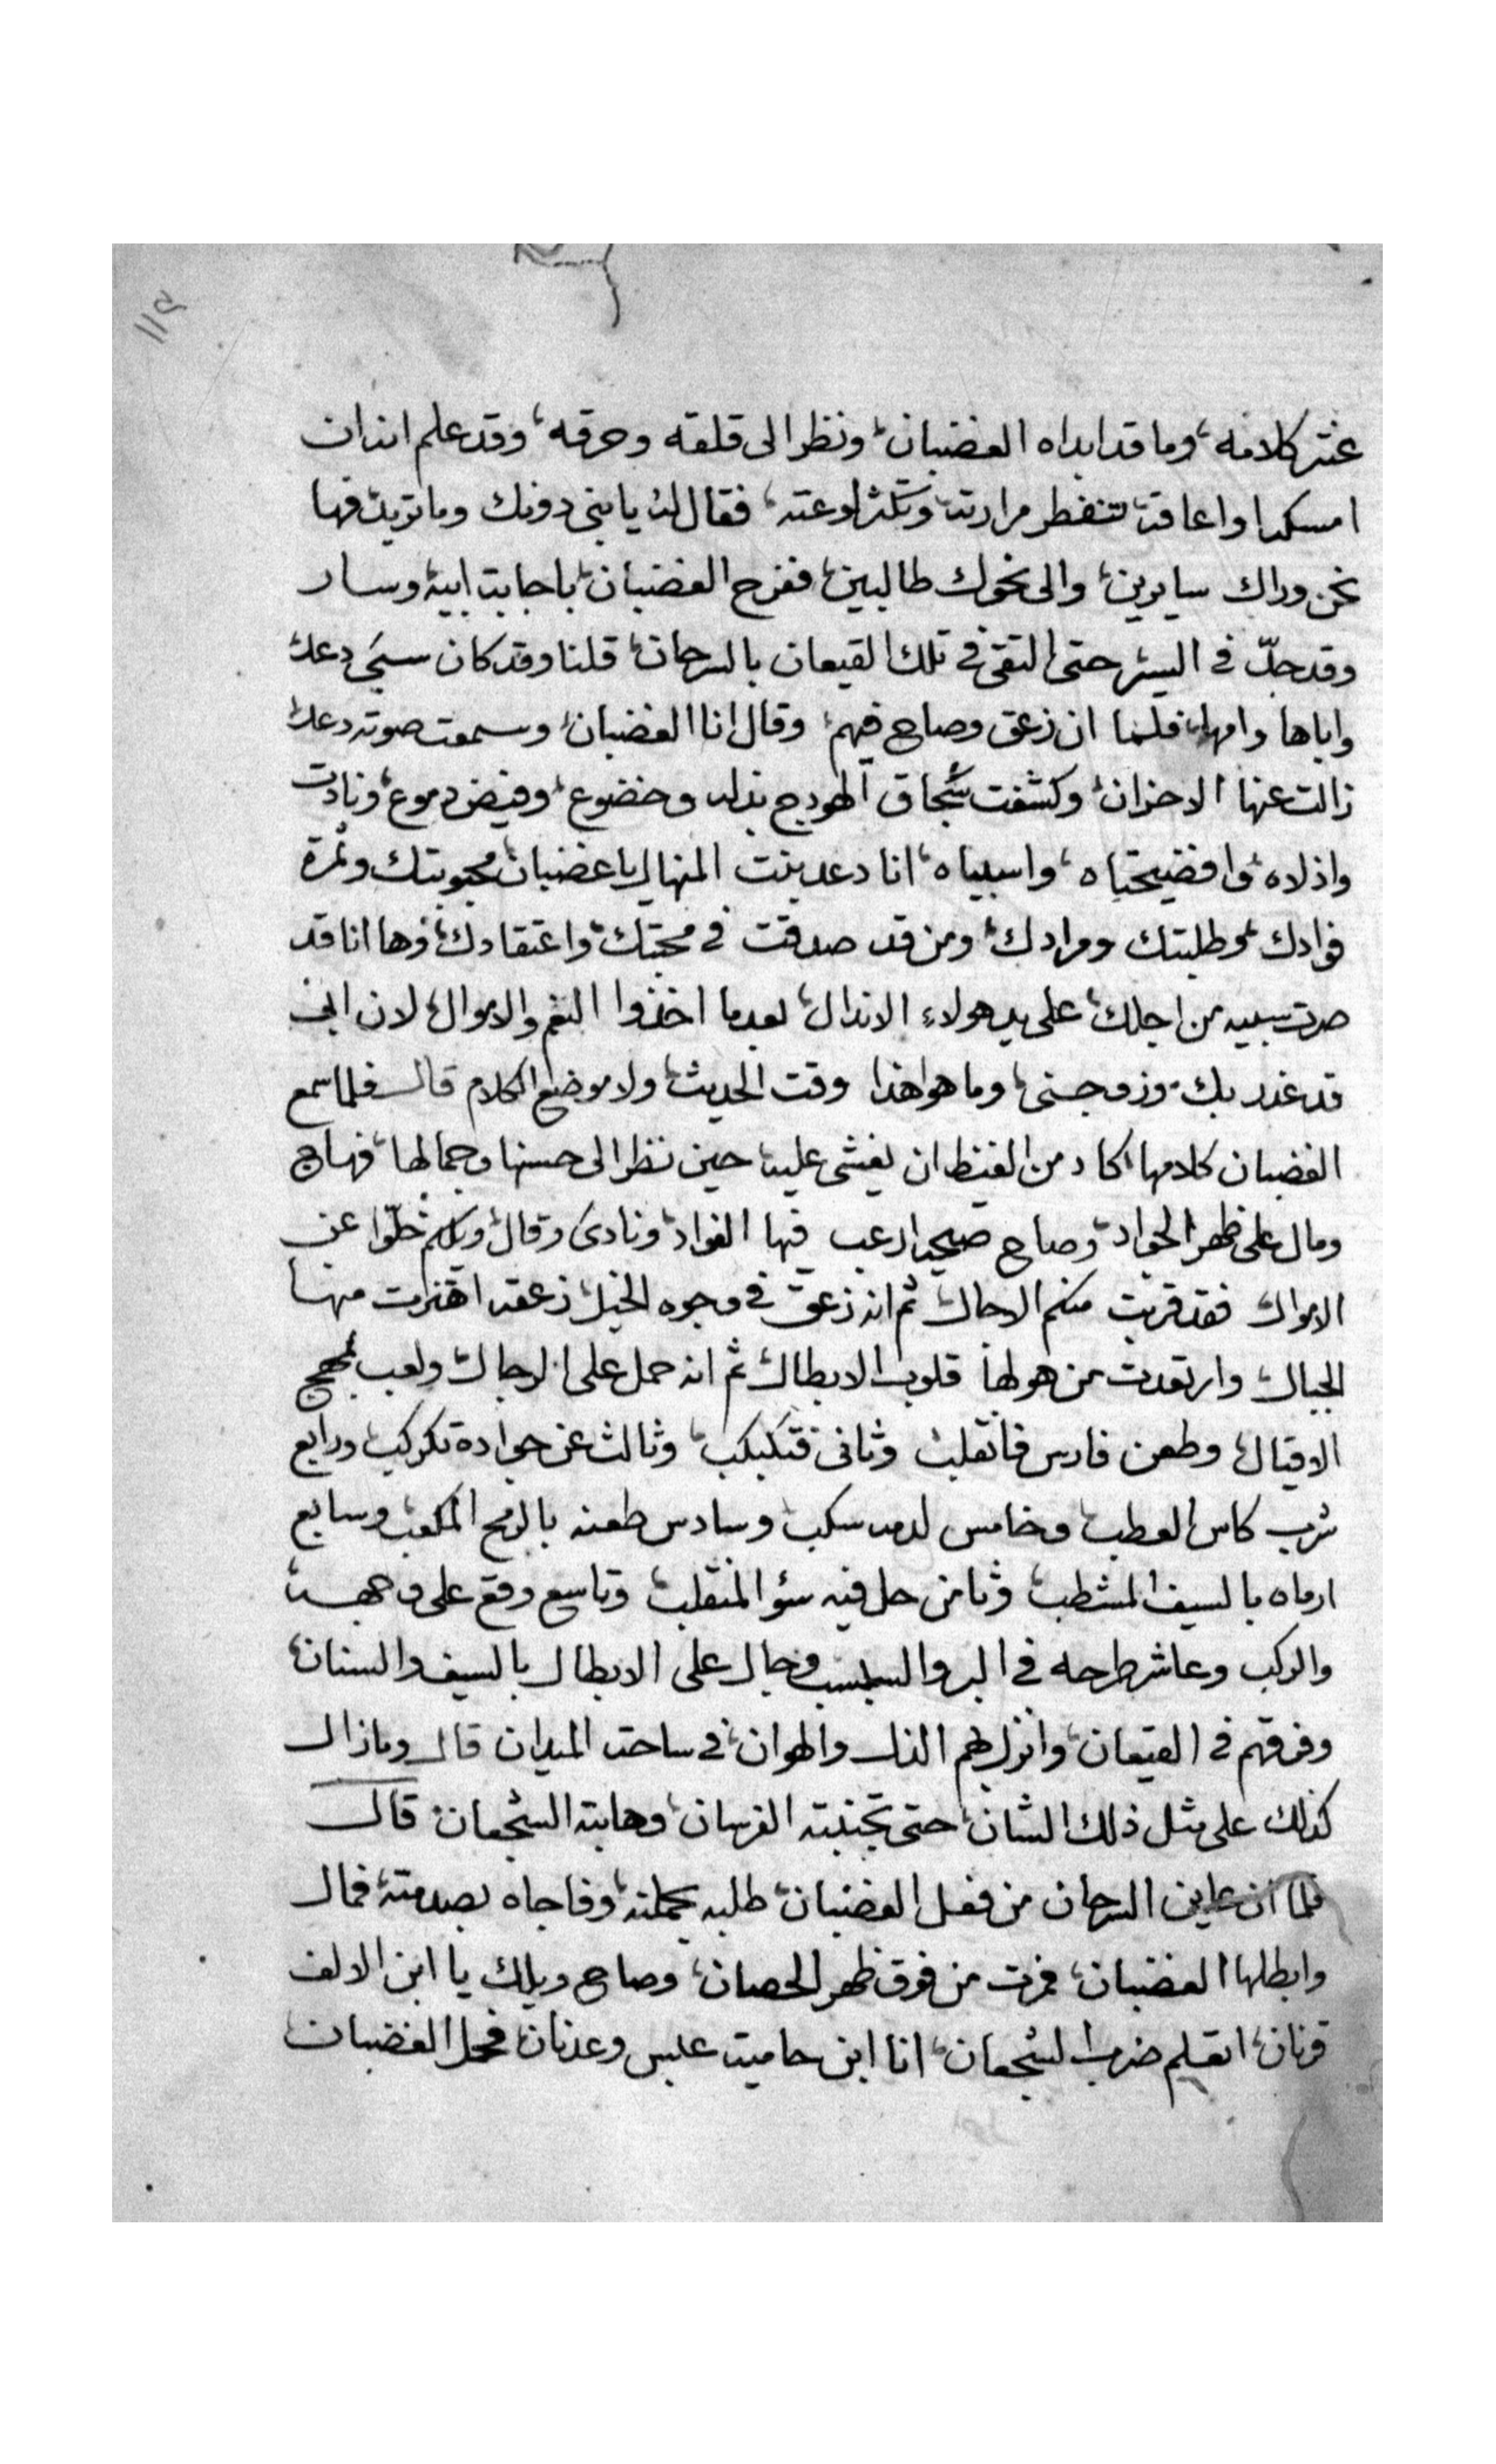 ١١٥
عنتر كلامه، وما قد ابداه الغضبان، ونظر الى قلقه وحرقه، وقد علم انه ان
امسكه واعاقه تنفطر مرارته وتكثر لوعته، فقال له يا بني دونك وما تريد فها
نحن وراك سايرين، والى نحوك طالبين، ففرح الغضبان، باجابة ابيه وسار
وقد جدّ في السير حتى التقى في تلك القيعان بالسرحان، قلنا وقد كان سبي دعد
واباها وامها، فلما ان زعق وصاح فيهم، وقال انا الغضبان، وسمعت صوته دعد
زالت عنها الاحزان، وكشفت سجاق الهودج بذله وخضوع، وفيض دموع، ونادت
واذلاه، وافضيحتاه، واسبياه، انا دعد بنت المنهال يا غضبان محبوبتك وثمرة
فوادك وطلبتك ومرادك، ومن قد صدقت في محبتك، واعتقادك، وها انا قد
صرت سبيه من اجلك، على يد هولاء الاندال، بعدما اخذوا النعم والاموال، لان ابي
قد غدر بك، وزوجني، وما هو هذا وقت الحديث، ولا موضع الكلام قال فلما سمع
الغضبان كلامها، كاد من الغيظ ان يغشى عليه حين نظر الى حسنها وجمالها، فهاج
ومال على ظهر الجواد، وصاح صيحه ارعب فيها الفواد، ونادى وقال، ويلكم خلّوا عن
الاموال فقد قربت منكم الاجال، ثم انه زعق في وجوه الخيل، زعقه اهتزت منها
الجبال وارتعدت من هولها قلوب الابطال، ثم انه حمل على الرجال، ولعب بمهج
الاقيال، وطعن فارس فانقلب، وثاني فتكبكب، وثالث عن جواده تكركب، ورابع
شرب كاس العطب، وخامس لدمه سكب، وسادس طعنه بالرمح المكعب، وسابع
ارماه بالسيف المشطب، وثامن حل فيه سؤ المنقلب، وتاسع وقع على وجهه
والركب وعاشر طرحه في البر والسبسب وجال على الابطال بالسيف والسنان،
وفرقهم في القيعان، وانزل بهم الذل والهوان، في ساحة الميدان قال وما زال
كذلك على مثل ذلك الشان، حتى تجنبته الفرسان، وهابته الشجعان، قال
فلما ان عاين السرحان من فعل الغضبان، طلبه بحملته، وفاجاه بصدمته، فمال
وابطلها الغضبان، فمرت من فوق ظهر الحصان، وصاح ويلك يا ابن الالف
قرنان، اتعلم ضرب الشجعان، انا ابن حامية عبس وعدنان، فحمل الغضبان